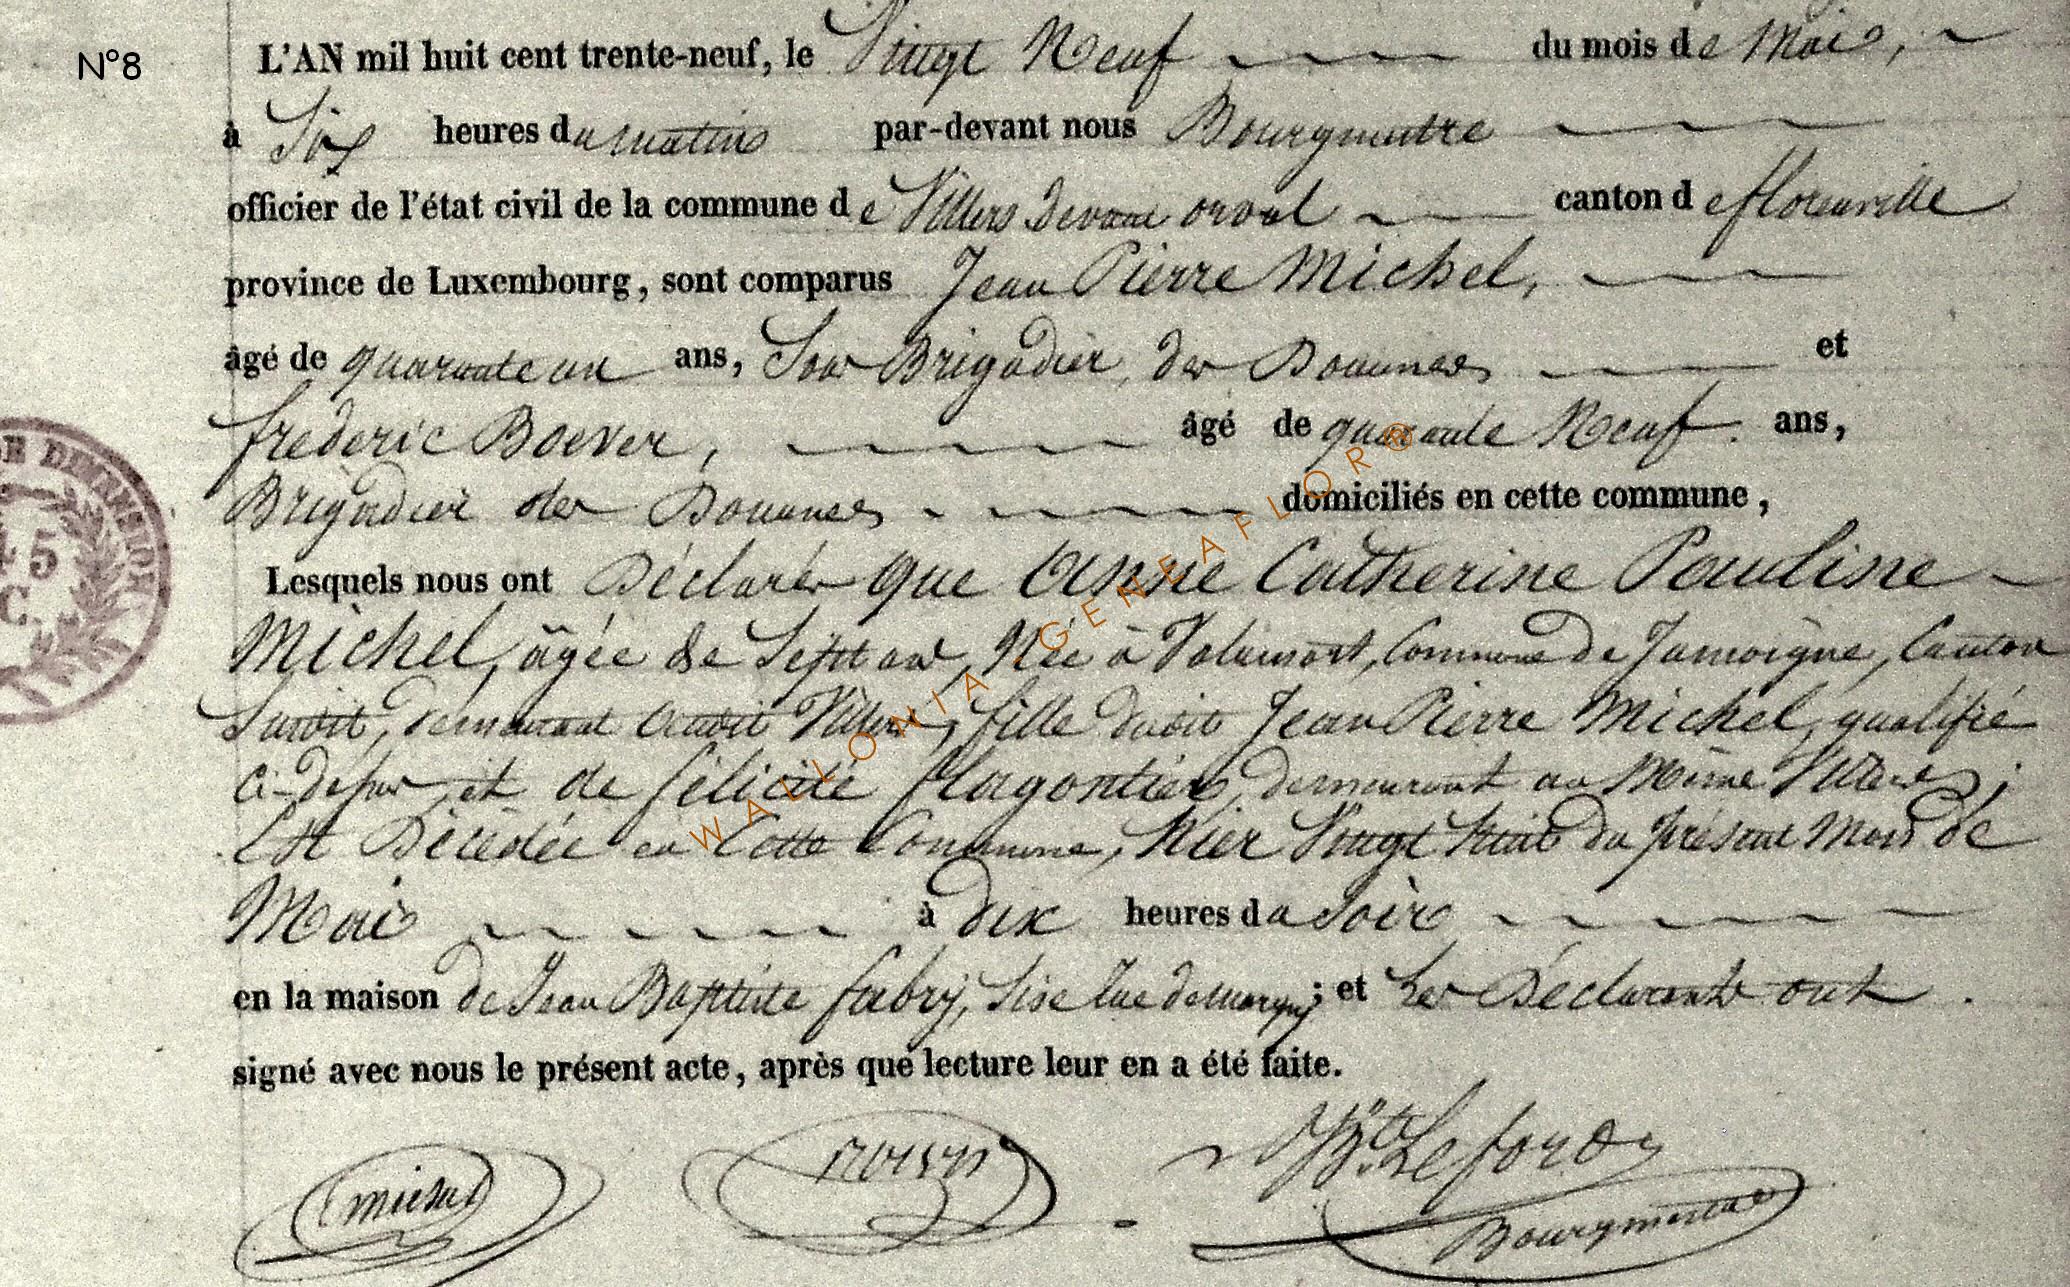 N°8
L'AN mil huit cent trente-neuf, le Vingt Neuf du mois de Mai,
à Six heures du matin par-devant nous Bourgmestre
officier de l'état civil de la commune de Villers devant orval canton de florenville
province de Luxembourg, sont comparus Jean Pierre Michel,
âgé de quarante un ans, Sous Brigadier des Douanes et
frederic Boever, âgé de quarante Neuf ans,
Brigadier des Douanes domiciliés en cette commune,
Lesquels nous ont Déclarés que Anne Catherine Pauline
Michel, âgée de Sept ans, Née à Valansart, Commune de Jamoigne, Canton
Susdit, demeurant audit Villers, fille dudit Jean Pierre Michel, qualifié
ci-dessus, et de félicité demeurant au Même Villers;
Est Décédée en Cette Commune, Hier Vingt Huit du présent Mois de
Mai à dix heures du Soir
en la maison de Jean Baptiste fabry, Sise rue de margny; et Les Déclarants ont
signé avec nous le présent acte, après que lecture leur en a été faite.
Michel
Bourgmestre
WALLONIA GENEAFLOR®
DIMENSION
45
C.